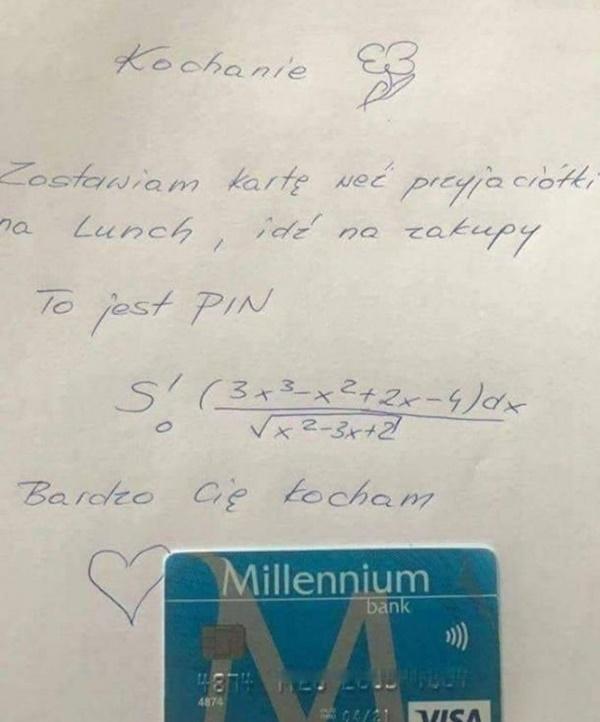 Kochanie
Zostawiam kartę weź przyjaciółki
na Lunch, idź na zakupy
To jest PIN
S¹₀ (3x³-x²+2x-4)dx
√x²-3x+2
Bardzo Cię kocham
Millennium
bank
4874
4874
04/21
VISA